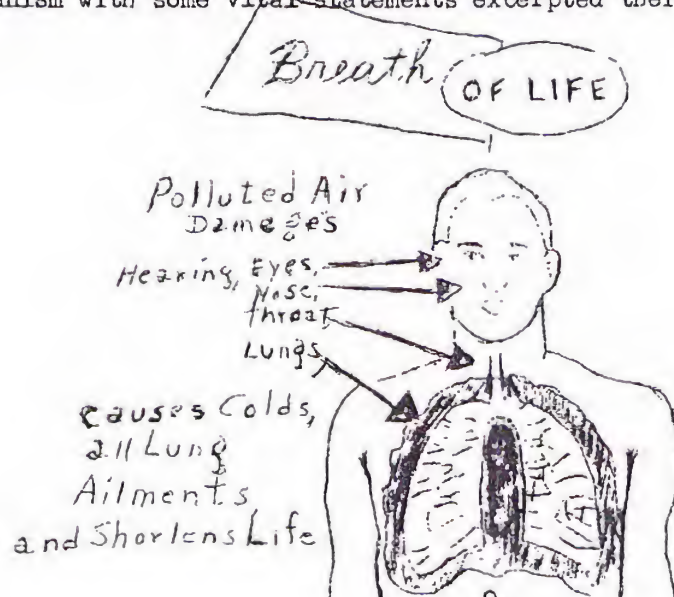 anism with some vital statements excerpted ther
Breath
OF LIFE
Polluted Air
Dameges
Hearing, Eyes,
Nose,
throat,
Lungs,
causes Colds,
all Lung
Ailments,
and Shortens Life